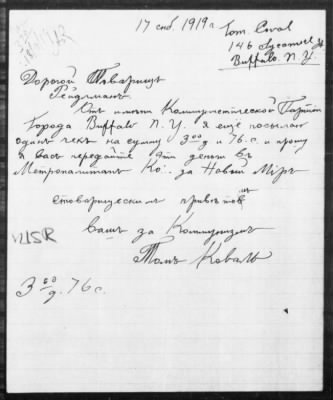 17 снб. 1919 г.
Tom. Coval
146 Sycamore St
Buffalo. N. Y.
Дорогой Товарищъ
Рейдманъ
Отъ имени Коммунистической Партии
Города Buffalo N. Y. я ещё посылаю
одинъ чекъ на сумму 3 00 д и 76. с. и прошу
я васъ передайте эти деньги въ
Метрополитанъ Ко. за Новый Міръ
стоварищескимъ привѣтомъ
Вашъ за Коммунизмъ
Томъ Коваль
3 00 д. 76 с.